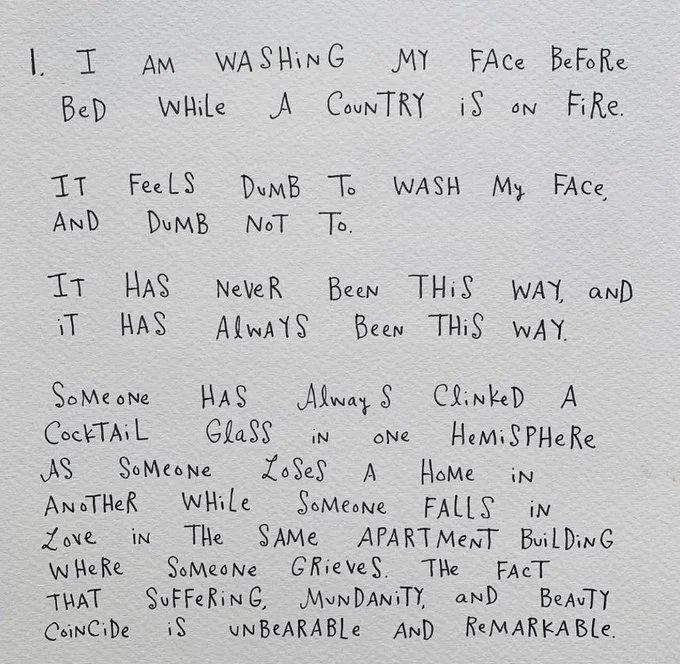 1. I AM WASHING MY FACE BEFORE
BED WHILE A COUNTRY IS ON FIRE.
IT FEELS DUMB TO WASH MY FACE,
AND DUMB NOT TO.
IT HAS NEVER BEEN THIS WAY, AND
IT HAS ALWAYS BEEN THIS WAY.
SOMEONE HAS ALWAYS CLINKED A
COCKTAIL GLASS IN ONE HEMISPHERE
AS SOMEONE LOSES A HOME IN
ANOTHER WHILE SOMEONE FALLS IN
LOVE IN THE SAME APARTMENT BUILDING
WHERE SOMEONE GRIEVES. THE FACT
THAT SUFFERING, MUNDANITY, AND BEAUTY
COINCIDE IS UNBEARABLE AND REMARKABLE.